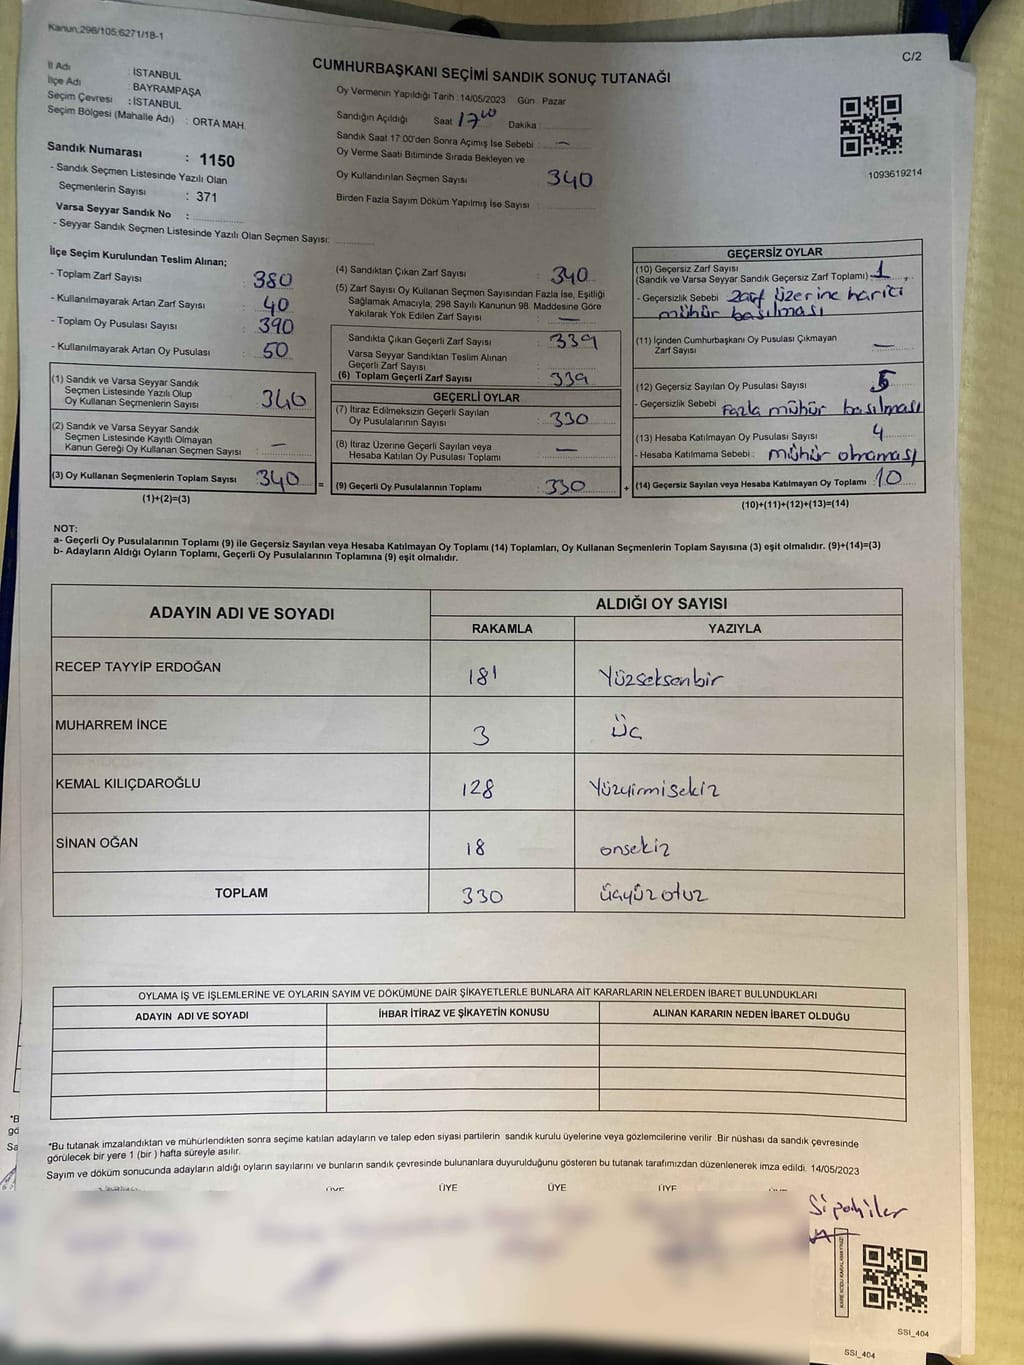 Kanun:298/105;6271/18-1
C/2
İl Adı : İSTANBUL
İlçe Adı : BAYRAMPAŞA
Seçim Çevresi : İSTANBUL
Seçim Bölgesi (Mahalle Adı) : ORTA MAH.
Sandık Numarası : 1150
- Sandık Seçmen Listesinde Yazılı Olan
Seçmenlerin Sayısı : 371
Varsa Seyyar Sandık No :
- Seyyar Sandık Seçmen Listesinde Yazılı Olan Seçmen Sayısı:
CUMHURBAŞKANI SEÇİMİ SANDIK SONUÇ TUTANAĞI
Oy Vermenin Yapıldığı Tarih :14/05/2023 Gün : Pazar
Sandığın Açıldığı Saat 17 00 Dakika :
Sandık Saat 17:00'den Sonra Açımış İse Sebebi : —
Oy Verme Saati Bitiminde Sırada Bekleyen ve
Oy Kullandırılan Seçmen Sayısı 340
Birden Fazla Sayım Döküm Yapılmış İse Sayısı :
1093619214
İlçe Seçim Kurulundan Teslim Alınan;
- Toplam Zarf Sayısı : 380
- Kullanılmayarak Artan Zarf Sayısı : 40
- Toplam Oy Pusulası Sayısı : 390
- Kullanılmayarak Artan Oy Pusulası : 50
(1) Sandık ve Varsa Seyyar Sandık
Seçmen Listesinde Yazılı Olup
Oy Kullanan Seçmenlerin Sayısı : 340
(2) Sandık ve Varsa Seyyar Sandık
Seçmen Listesinde Kayıtlı Olmayan
Kanun Gereği Oy Kullanan Seçmen Sayısı : —
(3) Oy Kullanan Seçmenlerin Toplam Sayısı : 340 =
(1)+(2)=(3)
(4) Sandıktan Çıkan Zarf Sayısı : 340
(5) Zarf Sayısı Oy Kullanan Seçmen Sayısından Fazla İse, Eşitliği
Sağlamak Amacıyla; 298 Sayılı Kanunun 98. Maddesine Göre
Yakılarak Yok Edilen Zarf Sayısı : —
Sandıkta Çıkan Geçerli Zarf Sayısı : 339
Varsa Seyyar Sandıktan Teslim Alınan
Geçerli Zarf Sayısı :
(6) Toplam Geçerli Zarf Sayısı : 339
GEÇERLİ OYLAR
(7) İtiraz Edilmeksizin Geçerli Sayılan
Oy Pusulalarının Sayısı : 330
(8) İtiraz Üzerine Geçerli Sayılan veya
Hesaba Katılan Oy Pusulası Toplamı : —
(9) Geçerli Oy Pusulalarının Toplamı : 330 +
GEÇERSİZ OYLAR
(10) Geçersiz Zarf Sayısı
(Sandık ve Varsa Seyyar Sandık Geçersiz Zarf Toplamı) : 1
- Geçersizlik Sebebi : Zarf üzerine harici
mühür basılması
(11) İçinden Cumhurbaşkanı Oy Pusulası Çıkmayan
Zarf Sayısı —
(12) Geçersiz Sayılan Oy Pusulası Sayısı : 5
- Geçersizlik Sebebi : Fazla mühür basılması
(13) Hesaba Katılmayan Oy Pusulası Sayısı 4
- Hesaba Katılmama Sebebi : mühür olmaması
(14) Geçersiz Sayılan veya Hesaba Katılmayan Oy Toplamı : 10
(10)+(11)+(12)+(13)=(14)
NOT:
a- Geçerli Oy Pusulalarının Toplamı (9) ile Geçersiz Sayılan veya Hesaba Katılmayan Oy Toplamı (14) Toplamları, Oy Kullanan Seçmenlerin Toplam Sayısına (3) eşit olmalıdır. (9)+(14)=(3)
b- Adayların Aldığı Oyların Toplamı, Geçerli Oy Pusulalarının Toplamına (9) eşit olmalıdır.
ADAYIN ADI VE SOYADI
ALDIĞI OY SAYISI
RAKAMLA YAZIYLA
RECEP TAYYİP ERDOĞAN 181 Yüzseksenbir
MUHARREM İNCE 3 Üç
KEMAL KILIÇDAROĞLU 128 Yüzyirmisekiz
SİNAN OĞAN 18 onsekiz
TOPLAM 330 üçyüzotuz
OYLAMA İŞ VE İŞLEMLERİNE VE OYLARIN SAYIM VE DÖKÜMÜNE DAİR ŞİKAYETLERLE BUNLARA AİT KARARLARIN NELERDEN İBARET BULUNDUKLARI
ADAYIN ADI VE SOYADI İHBAR İTİRAZ VE ŞİKAYETİN KONUSU ALINAN KARARIN NEDEN İBARET OLDUĞU
*Bu tutanak imzalandıktan ve mühürlendikten sonra seçime katılan adayların ve talep eden siyasi partilerin sandık kurulu üyelerine veya gözlemcilerine verilir. Bir nüshası da sandık çevresinde
görülecek bir yere 1 (bir ) hafta süreyle asılır.
Sayım ve döküm sonucunda adayların aldığı oyların sayılarını ve bunların sandık çevresinde bulunanlara duyurulduğunu gösteren bu tutanak tarafımızdan düzenlenerek imza edildi. 14/05/2023
ÜYE ÜYE ÜYE ÜYE
Sipahiler
KARE KODU KARALAMAYINIZ!
SSI_404
SSI_404
*B
gö
Sa